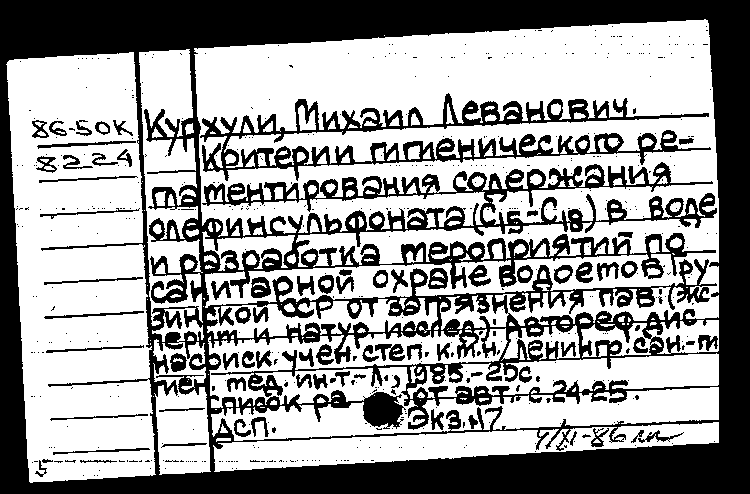 86-50К Курхули, Михаил Леванович.
8224 Критерии гигиенического ре-
гламентирования содержания
олефинсульфоната (C15-C18) в воде
и разработка мероприятий по
санитарной охране водоемов Гру-
зинской ССР от загрязнения пав: (Экс-
перим. и натур. исслед.): Автореф. дис.
на соиск. учен. степ. к.м.н./Ленингр. сан.-ги
гиен. мед. ин-т.-Л., 1985.-25с.
Список ра от авт.: с.24-25.
ДСП. Экз.№7.
4/XI-86
5